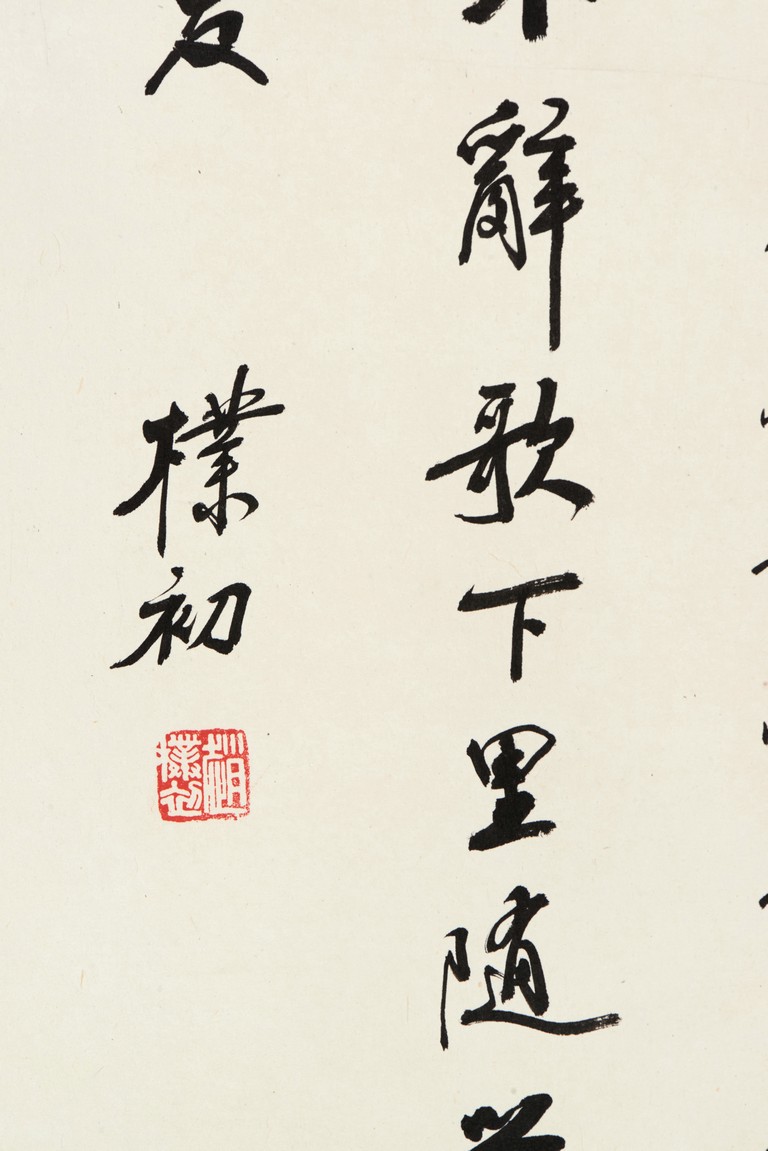 辭歌下里随
樸初
趙樸初